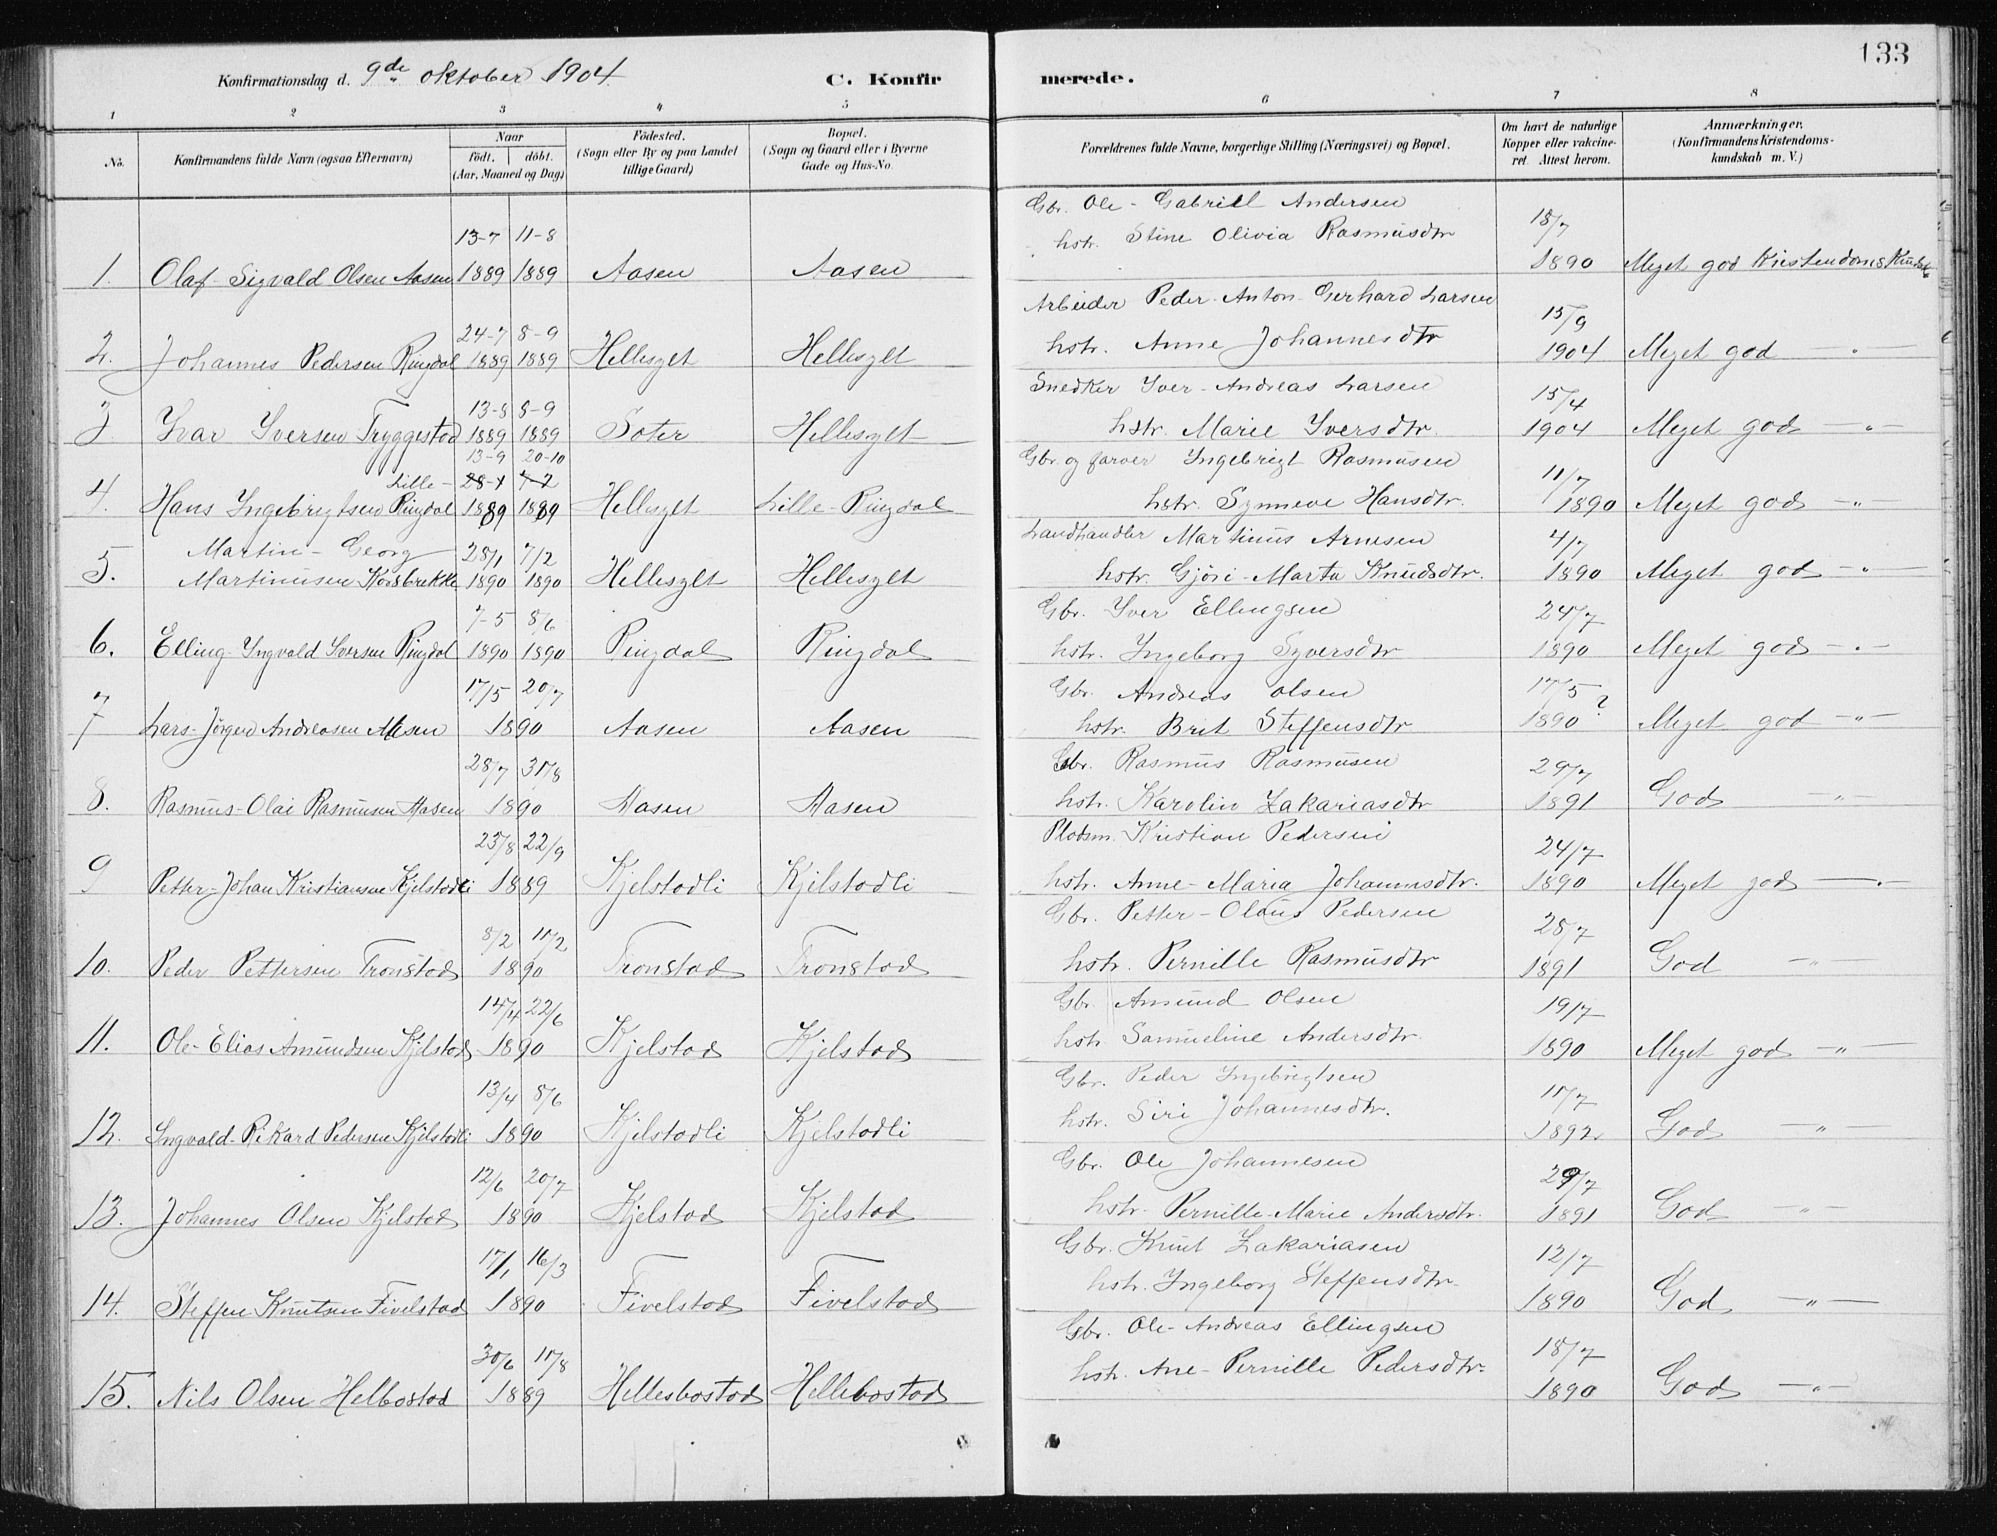 133
Konfirmationsdag d. 9de oktober 1904. C. Konfir merede.
1 2 3 4 5 6 7 8
No. Konfirmandens fulde Navn (ogsaa Efternavn) Naar födt. döbt. (Aar, Maaned og Dag) Födested. (Sogn eller By og paa Landet tillige Gaard) Bopæl. (Sogn og Gaard eller i Byerne Gade og Hus-No. Forældrenes fulde Navne, borgerlige Stilling (Næringsvei) og Bopæl. Om havt de naturlige Kopper eller vakcineret. Attest herom. Anmærkninger. (Konfirmandens Kristendomskundskab m. V.)
Gbr. Ole-Gabriel Andersen
13-7 11-8 hstr. Stine Olivia Rasmusdtr 18/7
1. Olaf-Sigvald Olsen Aasen 1889 1889 Aasen Aasen 1890 Meget god Kristendoms
Arbeider Peder-Anton-Gerhard Larsen
24-7 8-9 15/9
2. Johannes Pedersen Ringdal 1889 1889 Hellesylt Hellesylt hstr. Anne Johannesdtr 1904 Meget god — " —
Snedker Iver-Andreas Larsen
13-8 8-9 15/4
3. Ivar Iversen Tryggestad 1889 1889 Sater Hellesylt hstr. Marie Iversdtr. 1904 Meget god — " —
13-9 20-10 Gbr. og farver Ingebrigt Rasmusen
Lille- 28-1 7-2 11/7
4. Hans Ingebrigtsen Ringdal 1889 1889 Hellesylt Lille-Ringdal hstr. Synneve Hansdtr. 1890 Meget god — " —
Martin-Georg 28/1 7/2 Landhandler Martinus Arnesen 4/7
5. Martinusen Korsbrekke 1890 1890 Hellesylt Hellesylt hstr. Gjøri-Marta Knudsdtr. 1890 Meget god — " —
7-5 8/6 Gbr. Iver Ellingsen 24/7
6. Elling-Ingvald Iversen Ringdal 1890 1890 Ringdal Ringdal hstr. Ingeborg Syversdtr 1890 Meget god — " —
17/5 20/7 Gbr. Andreas Olsen 17/5 ?
7 Lars-Jørgen Andreasen Aasen 1890 Aasen Aasen hstr. Brit Steffensdtr 1890 Meget god — " —
28/7 31/8 Gbr. Rasmus Rasmusen 29/7
8. Rasmus-Olai Rasmusen Aasen 1890 Aasen Aasen hstr. Karolin Zakariasdtr 1891 God — " —
23/8 22/9 Pladsm. Kristian Pedersen 24/7
9 Petter-Johan Kristiansen Kjelstadli 1889 Kjelstadli Kjelstadli hstr. Anne-Maria Johannesdtr. 1890 Meget god — " —
8/2 11/2 Gbr. Petter-Olaus Pedersen 28/7
10. Peder Pettersen Tronstad 1890 Tronstad Tronstad hstr. Pernille Rasmusdtr 1891 God — " —
14/4 22/6 Gbr. Amund Olsen 19/7
11. Ole-Elias Amundsen Kjelstad 1890 Kjelstad Kjelstad hstr. Samueline Andersdtr. 1890 Meget god — " —
13/4 8/6 Gbr. Peder Ingebrigtsen 11/7
12. Ingvald-Rikard Pedersen Kjelstadli 1890 Kjelstadli Kjelstadli hstr. Siri Johannesdtr. 1892 God — " —
12/6 20/7 Gbr. Ole Johannesen 29/7
13. Johannes Olsen Kjelstad 1890 Kjelstad Kjelstad hstr. Pernille-Marie Andersdtr. 1891 God — " —
17/1 16/3 Gbr. Knut Zakariasen 12/7
14. Steffen Knutsen Fivelstad 1890 Fivelstad Fivelstad hstr. Ingeborg Steffensdtr. 1890 God — " —
30/6 11/8 Gbr. Ole-Andreas Ellingsen 18/7
15. Nils Olsen Helbostad 1889 Hellesbostad Hellebostad hstr. Ane-Pernille Pedersdtr. 1890 God — " —